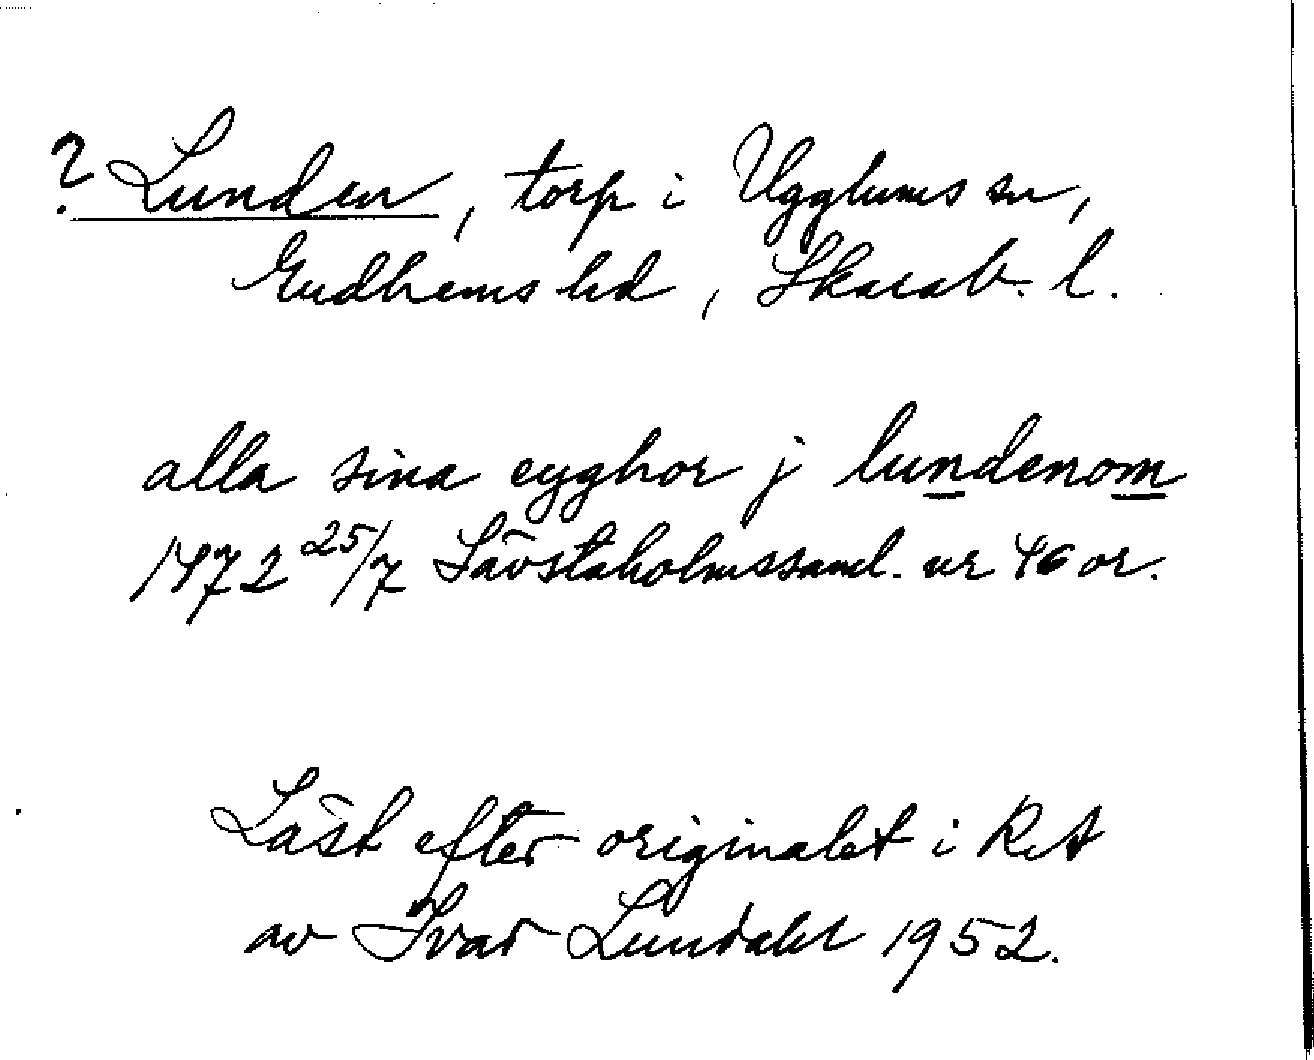 ? Lunden, torp i Ugglums sn,
Gudhems hd, Skarab. l.
alla sina eyghor j lundenom
1472 25/7 Sävstaholmssaml. nr 46 or.
Läst efter originalet i RA
av Ivar Lundahl 1952.